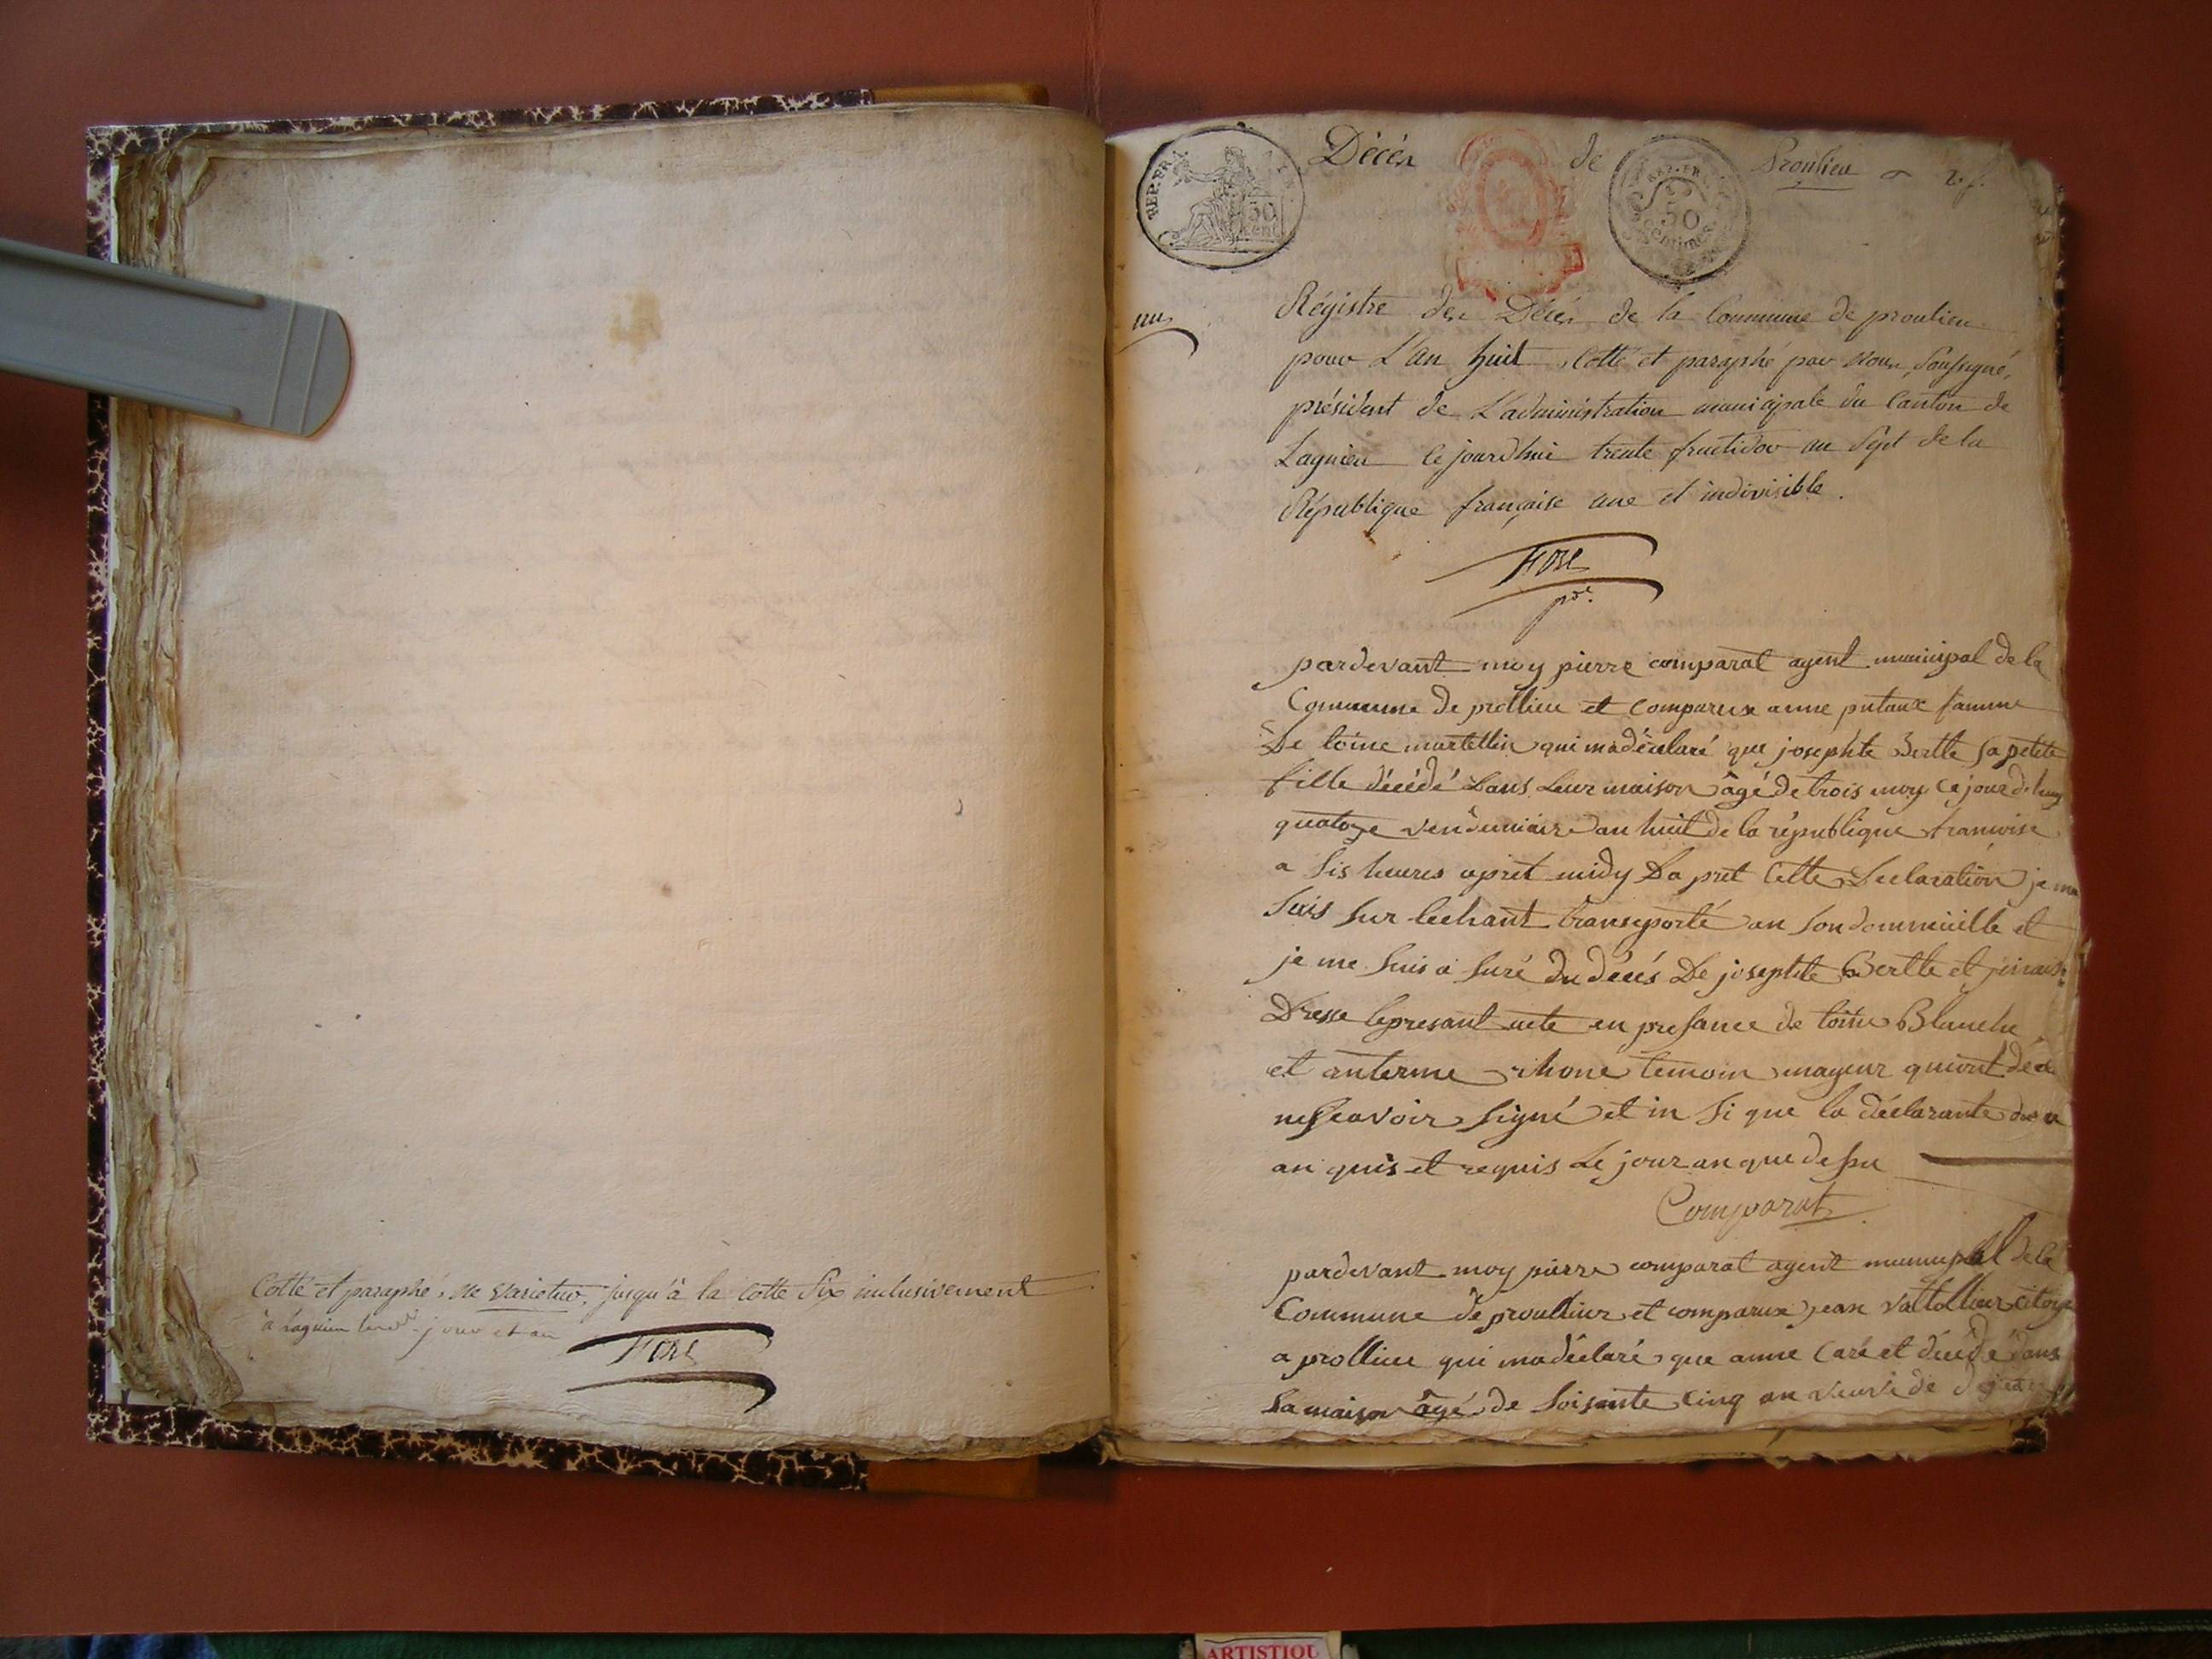 Cotté et paraphé, ne varietur, jusqu'à la cotte Six inclusivement
à Lagnieu jour et an
Décès de Proulieu
REP. FR.
50
cent
REP. FR.
50
centimes
un
Régistre des Décès de la Commune de proulieu
pour L'an huit, Cotté et paraphé par Nous, Soussigné,
président de L'administration municipale du Canton de
Lagnieu Cejourdhui trente fructidor an Sept de la
République française une et indivisible.
pdt.
pardevant moy pierre comparat agent municipal de la
Commune de prollieu et comparux anne putaux famme
De toine martellin qui madéclaré que josephte Bertle sa petite
fille décédé Dans Leur maison âgé de trois moy Cejourdhuy
quatoze vendemiaire an huit de la république francoise
a sis heures apret midy Da pret Cette Declaration je me
suis sur lechant transporté an son dommicille et
je me suis a suré du décés De josephte Bertle et jinais
Dresse lepresant acte en presance de toine Blanche
et anterme rhone temoin mageur quiont déc
nesceavoir signé et in si que la déclarante de ce
an quis et requis Le jour an que dessu
Comparat
pardevant moy pierre comparat agent municipal de la
Commune de proullieur et comparux jean vattollier citoye
a prollieu qui madéclaré que anne Caré et décédé dans
sa maison âgé de soisante cinq an veuve de
ARTISTIQU